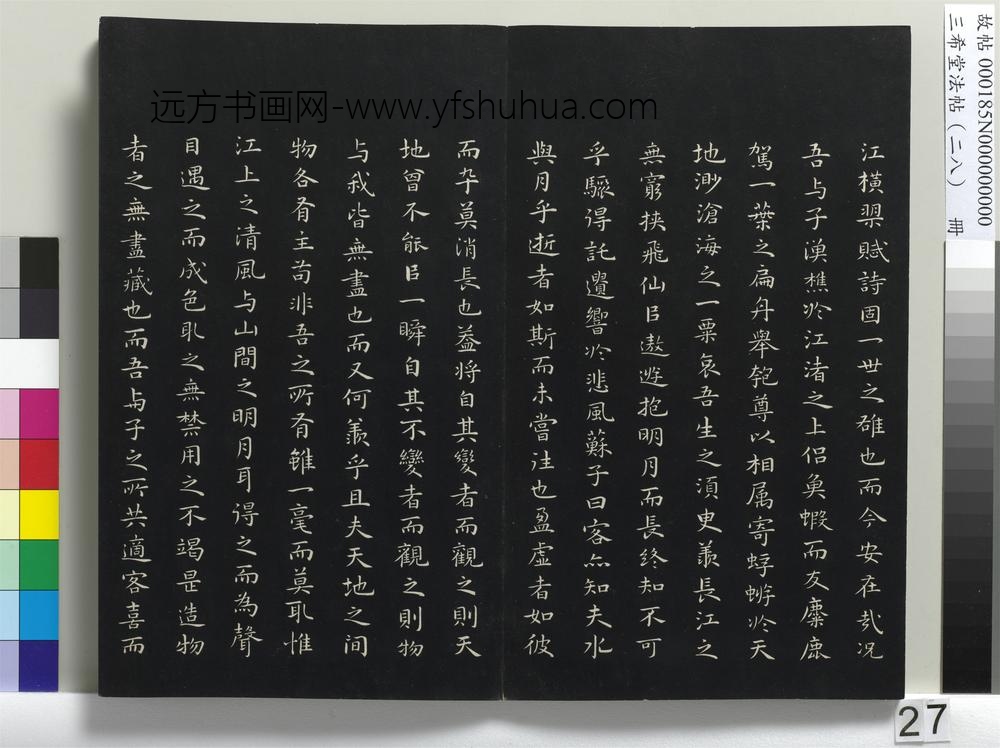 远方书画网-www.yfshuhua.com
故帖 000185N000000000
三希堂法帖(二八) 册
江橫槊賦詩固一世之雄也而今安在哉况
吾与子漁樵於江渚之上侣魚蝦而友麋鹿
駕一葉之扁舟舉匏尊以相属寄蜉蝣於天
地渺滄海之一粟哀吾生之湏臾羨長江之
無窮挾飛仙㠯遨遊抱明月而長终知不可
乎驟得託遺響於悲風蘇子曰客亦知夫水
與月乎逝者如斯而未嘗往也盈虚者如彼
而卒莫消長也葢将自其變者而觀之則天
地曾不能㠯一瞬自其不變者而觀之則物
与我皆無盡也而又何羨乎且夫天地之间
物各有主苟非吾之所有雖一毫而莫取惟
江上之清風与山間之明月耳得之而為聲
目遇之而成色取之無禁用之不竭是造物
者之無盡藏也而吾与子之所共適客喜而
27